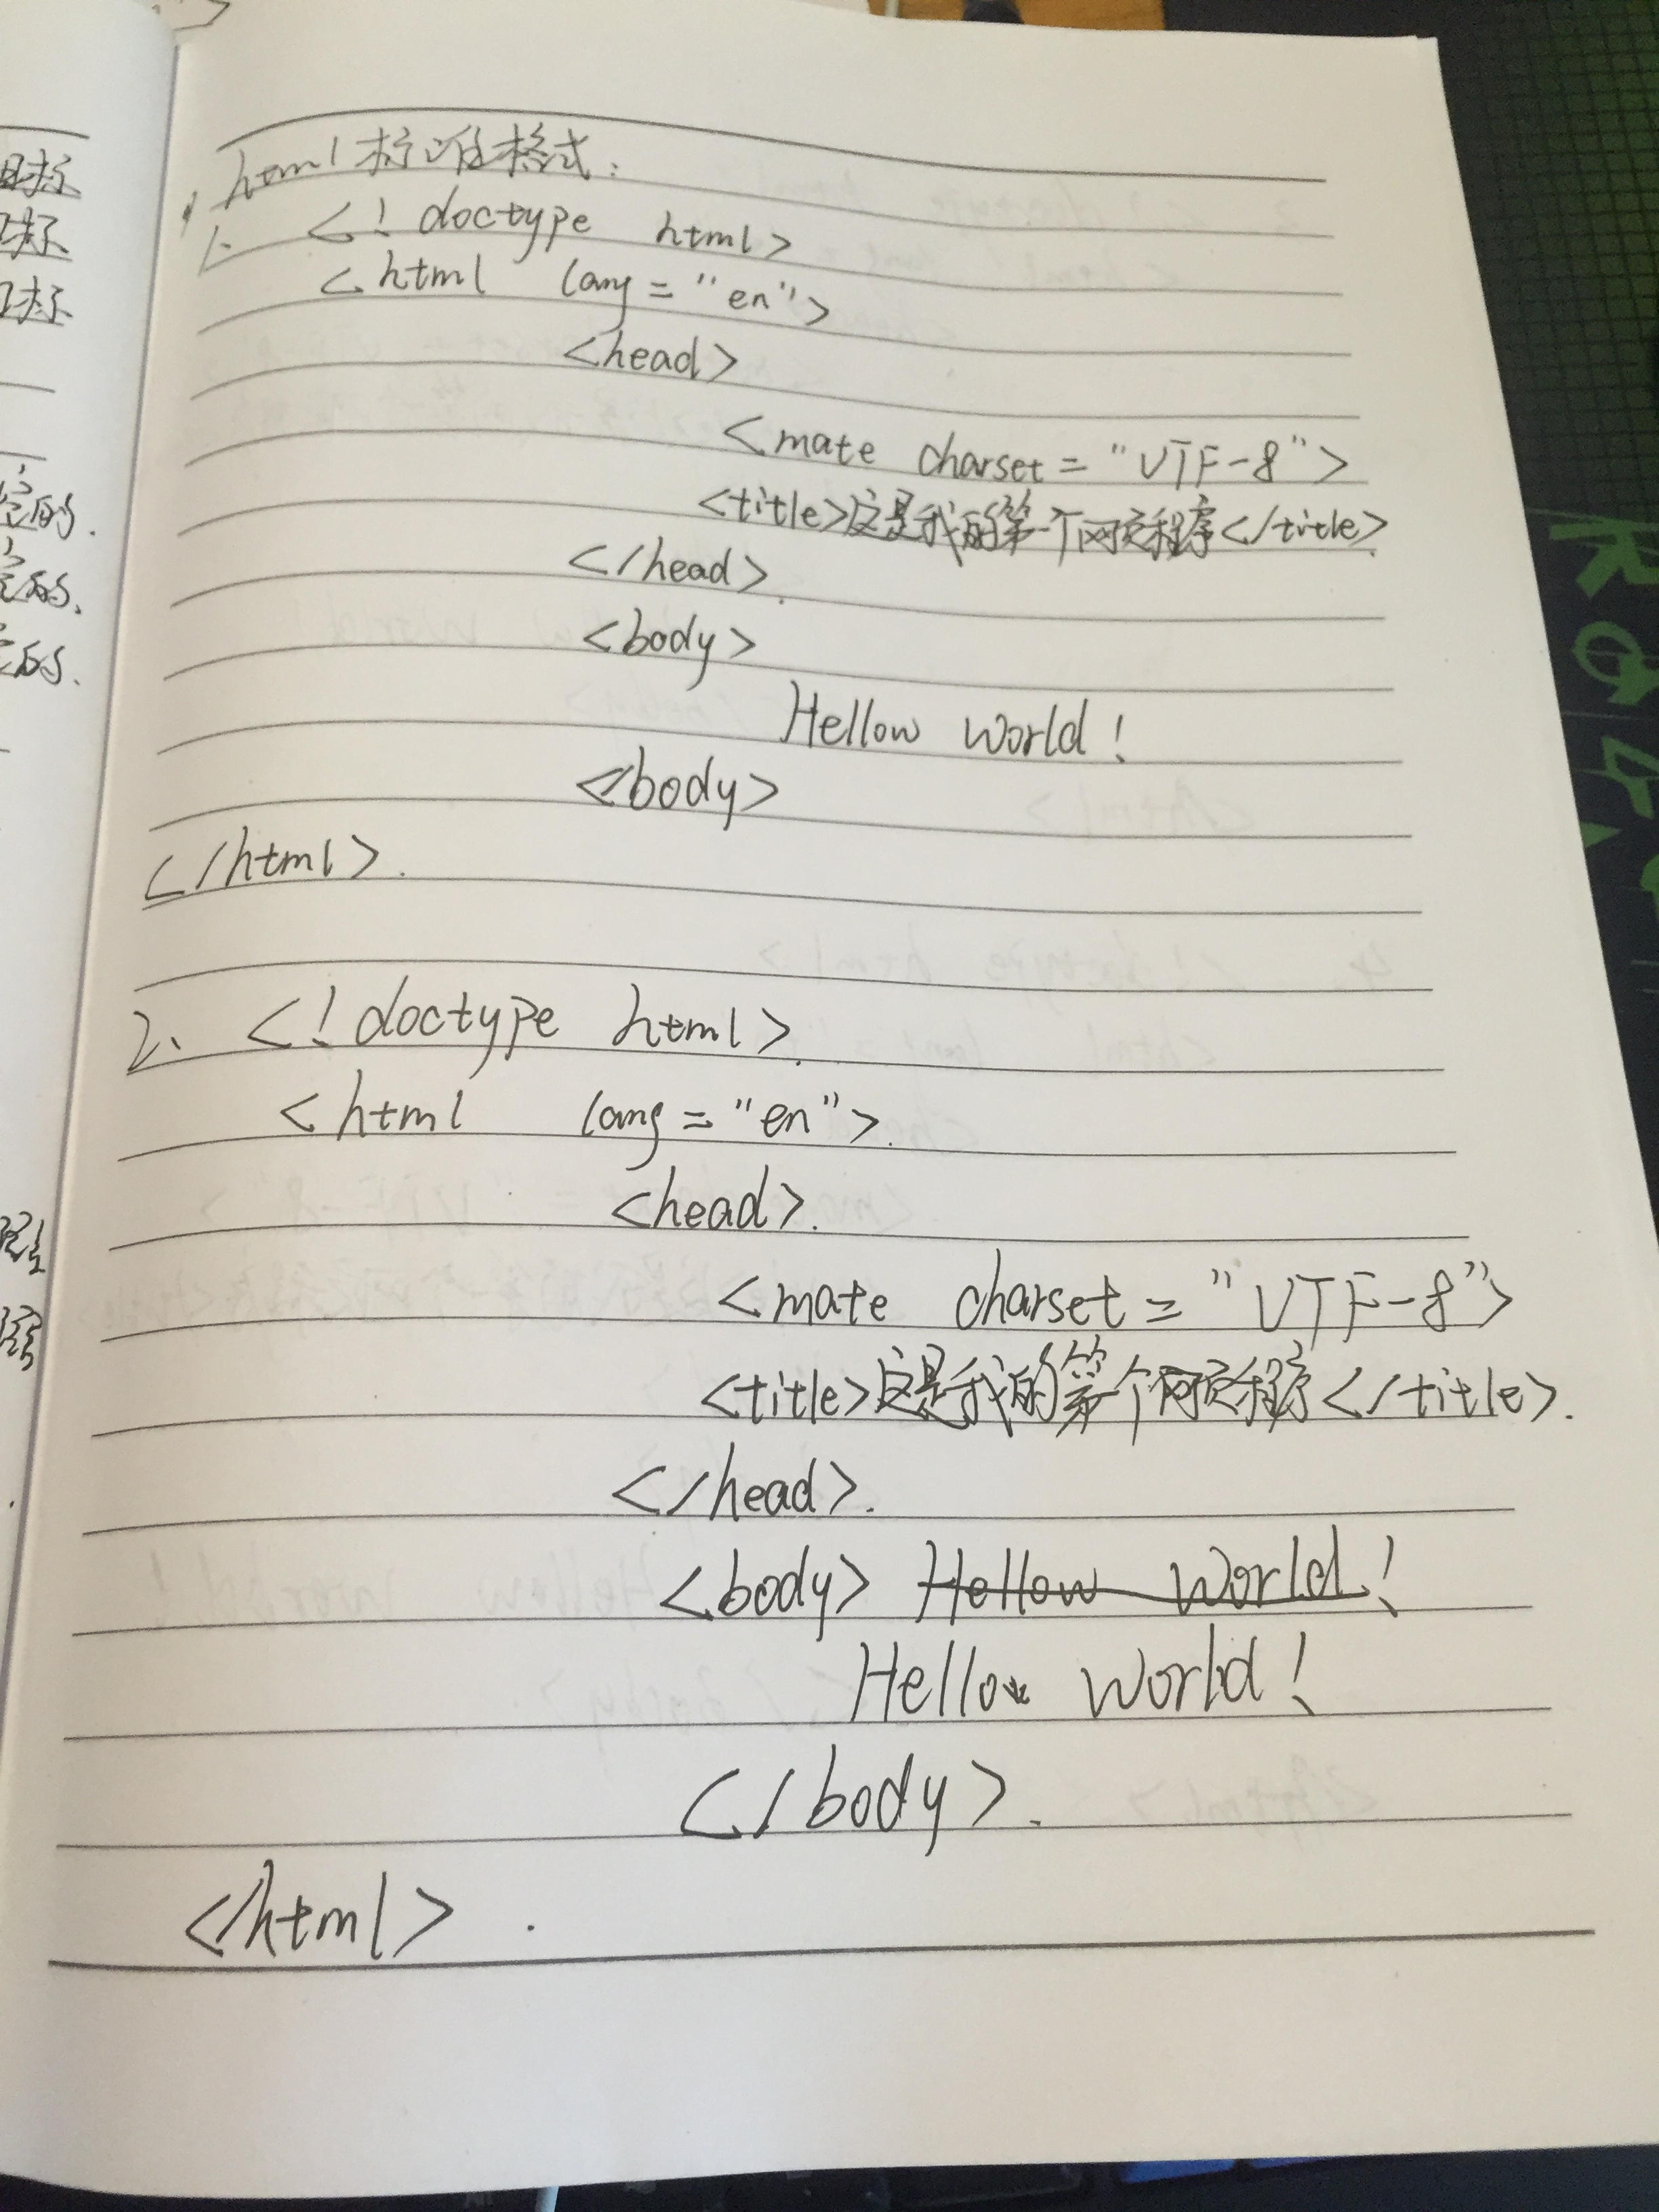 html标准格式:
1. <! doctype html>
<html lang="en">
<head>
<mate charset="UTF-8">
<title>这是我的第一个网页程序</title>
</head>.
<body>
Hellow world!
</body>
</html>.
2、<! doctype html>.
<html lang="en">.
<head>.
<mate charset="UTF-8">
<title>这是我的第一个网页程序</title>.
</head>.
<body> Hellow World!
Hellow world!
</body>.
</html>.
目标
标
标
的.
的.
的.